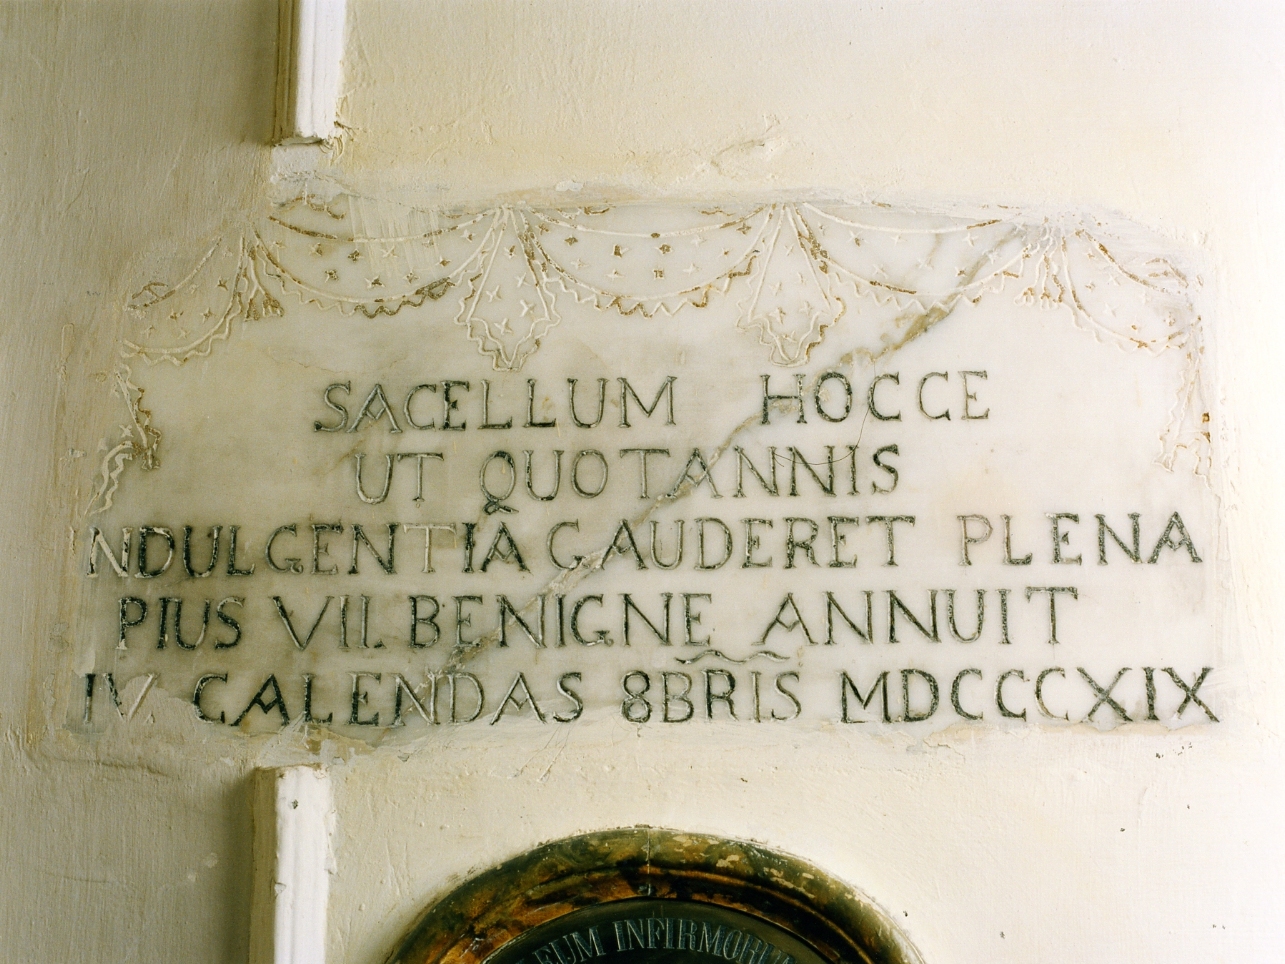 SACELLUM HOCCE
UT QUOTANNIS
NDULGENTIA GAUDERET PLENA
PIUS VII. BENIGNE ANNUIT
IV CALENDAS 8BRIS MDCCCXIX
INFIRMORUM